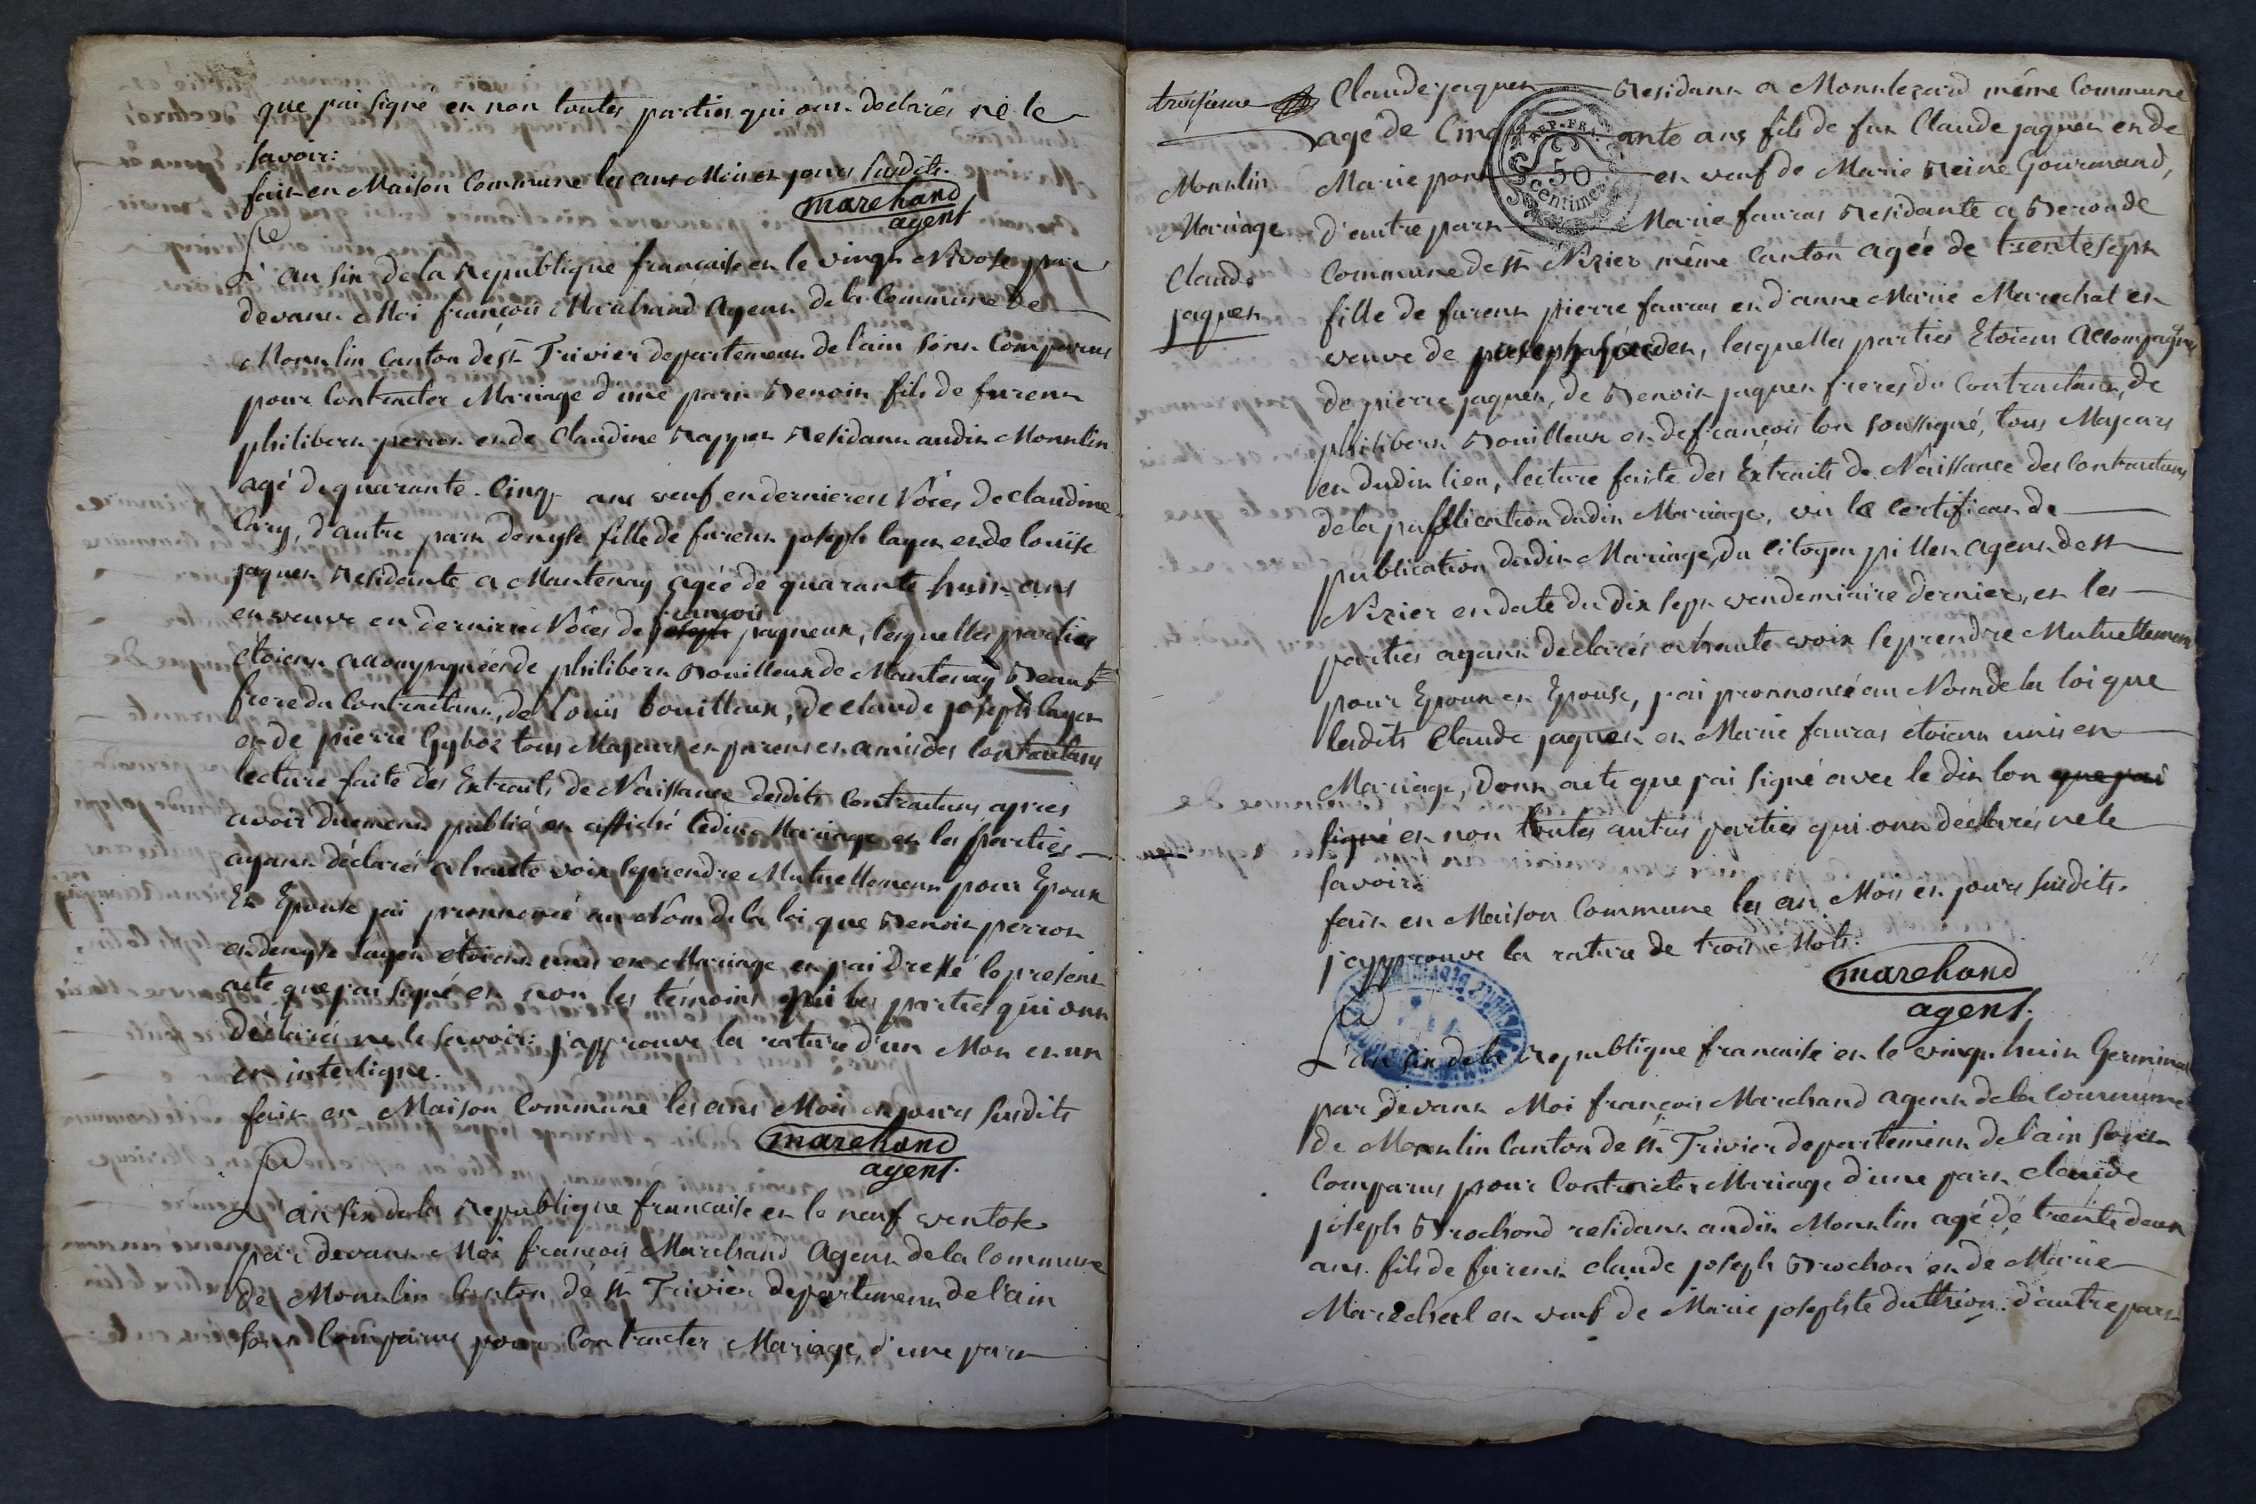 que j'ai signé et non toutes parties qui ont declarés ne le
savoir:
fait en Maison Commune les ans Mois et jours susdits.
marchand
agent
L'an six de la Republique francaise et le vingt Nivose par
devant Moi françois Marchand Agent de la Commune de
Montlin Canton de st Trivier departement de l'ain sont Comparus
pour Contracter Mariage d'une part Benoit fils de furent
philibert perron et de Claudine Rappet Residant audit Montlin
agé de quarante-Cinq ans veuf en dernieres Nôces de Claudine
Cary, d'autre part denyse fille de furent joseph layet et de louise
jaquet Residante a Mantenay agée de quarante huit ans
et veuve en derniere Nôces de françois joseph jaqueux, lesquelles parties
étoient accompagnées de philibert Bouilleux de Mantenay Beau
frere du Contractant, de louis bouilleux, de claude joseph layet
et de pierre Gyboz tous Majeurs et parens et amis des Contractans
lecture faite des Extraits de Naissance desdits Contractans apres
avoir duement publié et affiché ledit Mariage et les parties
ayant déclarés a haute voix se prendre Mutuellement pour Epoux
Et Epouse j'ai prononcé au Nom de la loi que Benoit perron
et denyse layet étoient unis en Mariage et j'ai Dressé le present
acte que j'ai signé et non les témoins qui les parties qui ont
déclarés ne le savoir: j'approuve la rature d'un Mot et un
en interligne.
fait en Maison Commune les ans Mois et jours susdits
marchand
agent.
L'an six de la Republique francaise et le neuf ventose
par devant Moi françois Marchand Agent de la Commune
de Montlin Canton de st Trivier departement de l'ain
sont Comparus pour Contracter Mariage, d'une part
troisieme
Montlin
Mariage
Claude
jaquet
REP. FRA.
50
centimes
Claude jaquet Residant a Montlezard même Commune
agé de Cinquante ans fils de fut Claude jaquet et de
Marie pont et veuf de Marie Reine Gourmand,
d'autre part Marie fauras Residante a Beronde
Commune de st Nizier même Canton agée de trente sept
fille de furent pierre fauras et d'anne Marie Marechal et
veuve de joseph, lesquelles parties Etoient accompagnées
de pierre jaquet, de Benoit jaquet freres du Contractant, de
philibert Bouilleux et de françois lon soussigné, tous Majeurs
et dudit lieu, lecture faite des Extraits de Naissance des Contractans
de la publication dudit Mariage, vu le Certificat de
publication dudit Mariage, du Citoyen pillet agent de st
Nizier en date du dix sept vendemiaire dernier, et les
parties ayant déclarés a haute voix se prendre Mutuellement
pour Epoux et Epouse, j'ai prononcé au Nom de la loi que
lesdits Claude jaquet et Marie fauras étoient unis en
Mariage, Dont acte que j'ai signé avec le dit lon que j'ai
signé et non toutes autres parties qui ont déclarés ne le
savoir.
fait en Maison Commune les an Mois et jours susdits.
j'approuve la rature de trois Mots.
marchand
agent.
L'an six de la Republique francaise et le vingt huit Germinal
par devant Moi françois Marchand agent de la Commune
de Montlin Canton de st Trivier departement de l'ain sont
Comparus pour Contracter Mariage d'une part claude
joseph Brochond residant audit Montlin agé de trente deux
ans fils de furent claude joseph Brochon et de Marie
Marechal et veuf de Marie josephte duthion. d'autre part